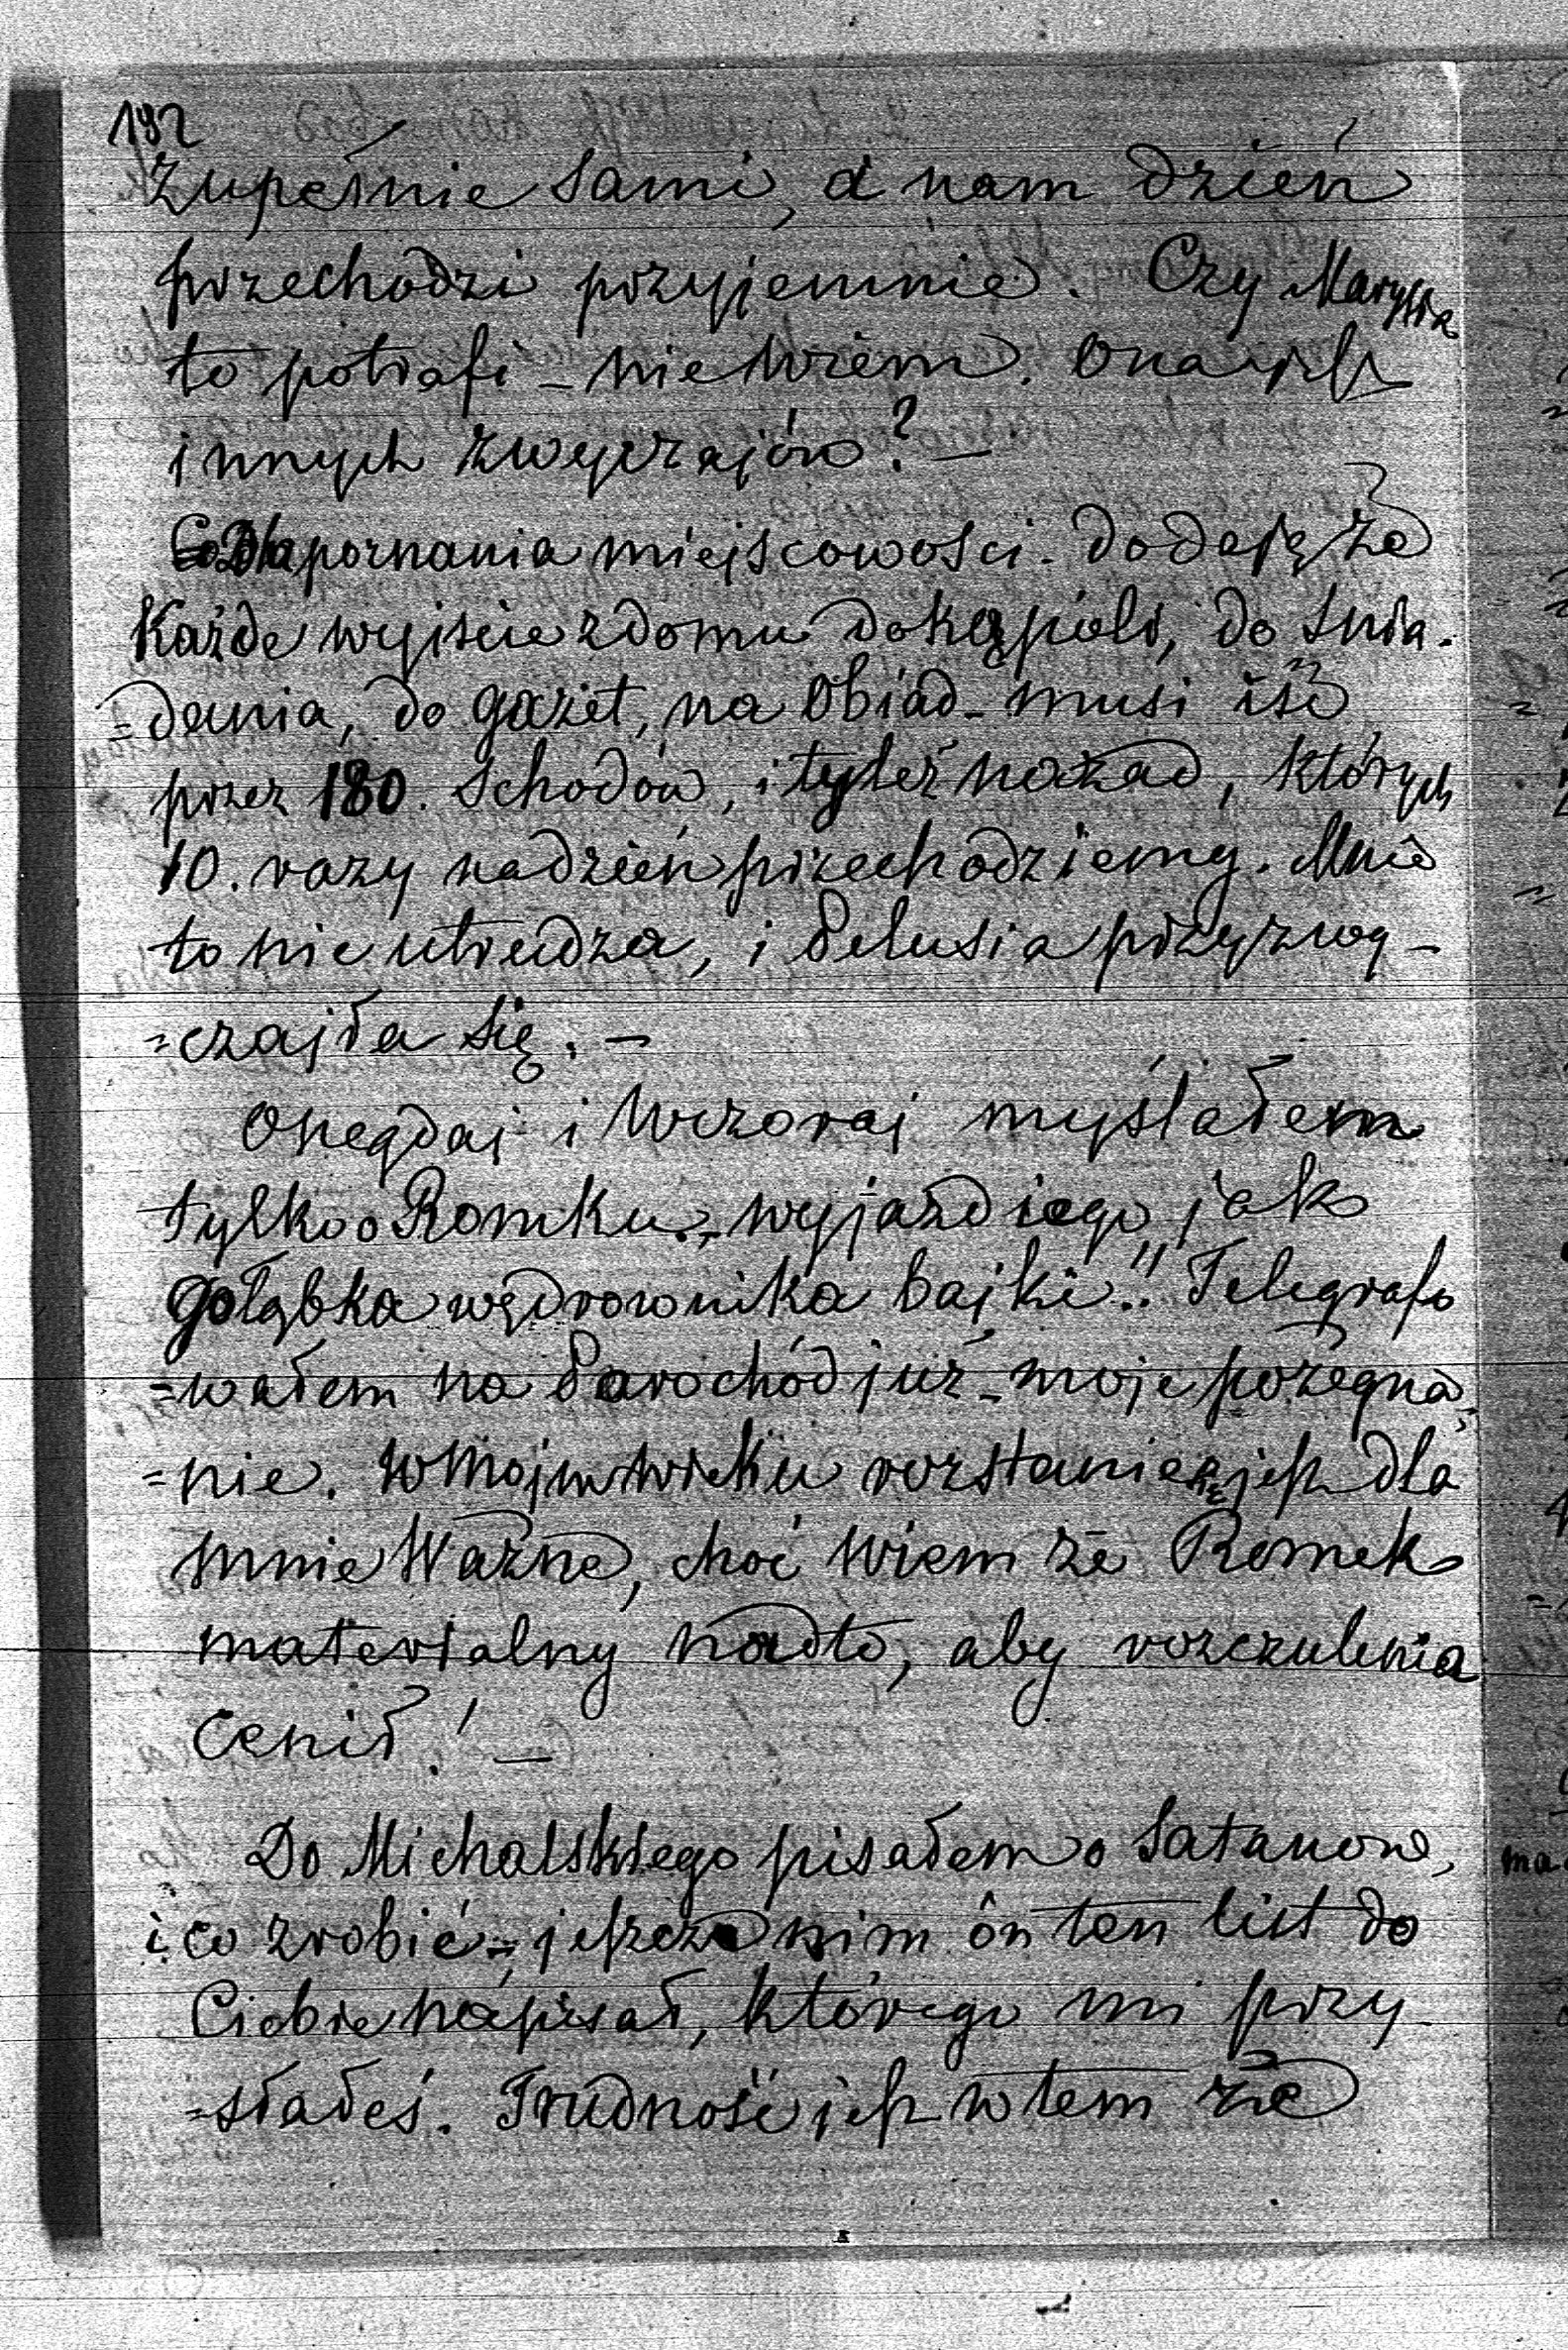 192
zupełnie sami, a nam dzień
przechodzi przyjemnie. Czy Marysia
to potrafi – nie wiem. Ona jest
innych zwyczajów? –
Dla poznania miejscowości. dodaję że
Każde wyjście z domu do kąpieli, do śnia-
=dania, do gazet, na obiad – musi iść
przez 180. schodów, i tyleż nazad, których
10. razy na dzień przechodziemy. Mnie
to nie utrudza, i Pelusia przyzwy–
=czajła się. –
Onegdaj i Wczoraj myślałem
tylko o Romku. wyjazd jego jak
gołąbka wędrownika bajki!! Telegrafo
=wałem na Parochód już – moje pożegna=
=nie. W mojm wieku rozstanie się jest dla
mnie Ważne, choć wiem że Romek
materialny nadto, aby rozczulenia
cenił! –
Do Michalskiego pisałem o Satanow,
i co zrobić – jeszcze nim on ten list do
Ciebie napisał, którego mi przy
=słałeś. Trudność jest w tem że